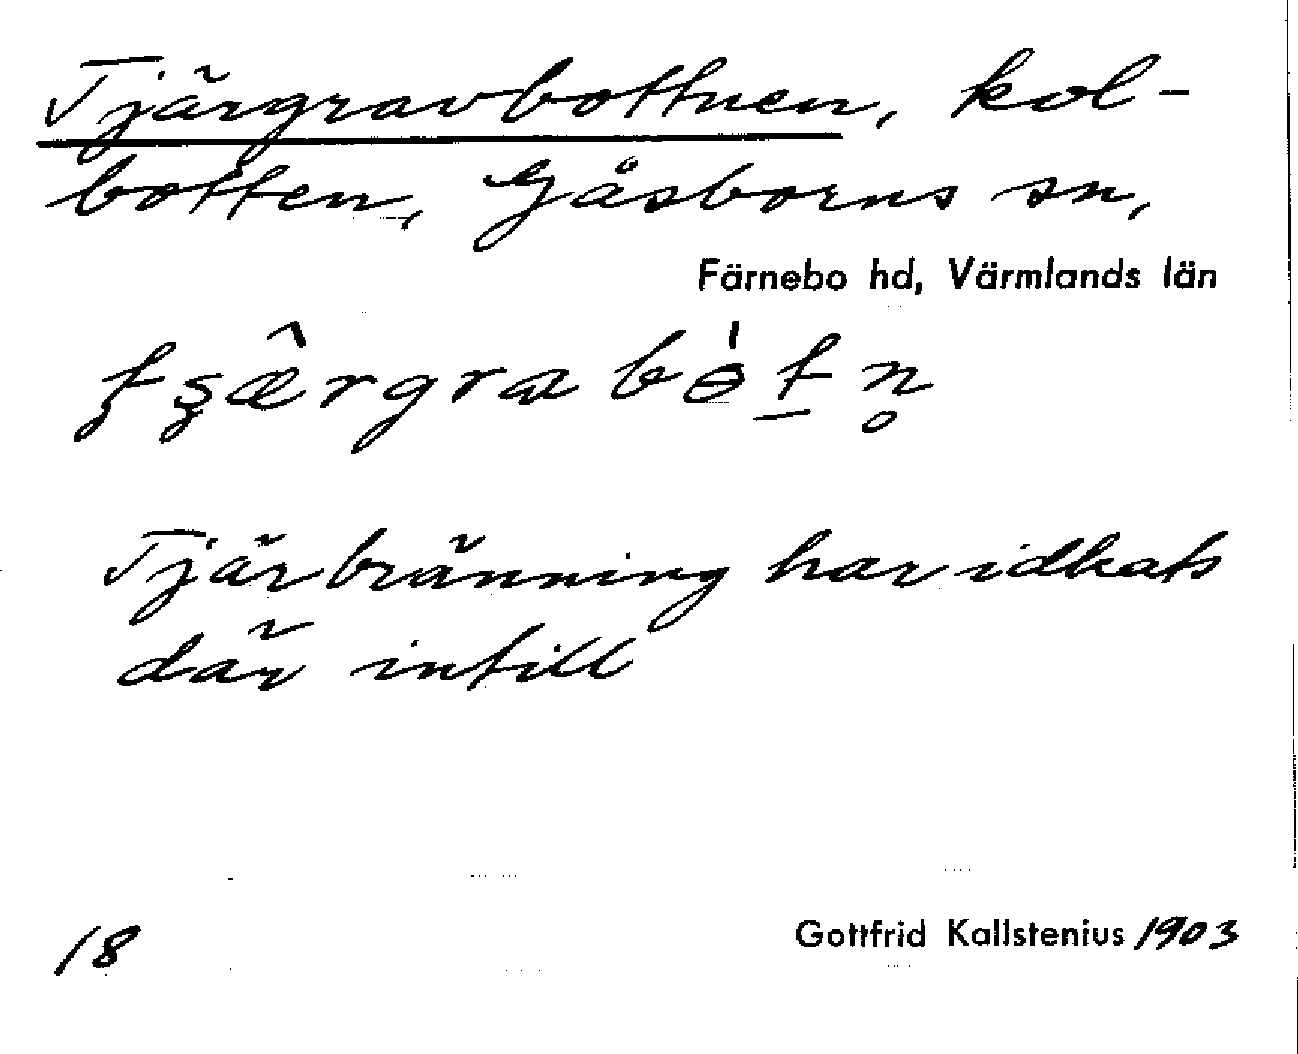 Tjärgravbottnen, kol-
botten, Gåsborns sn,
Färnebo hd, Värmlands län
Tjärbränning har idkats
där intill
18
Gottfrid Kallstenius 1903